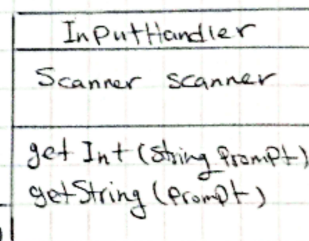 InputHandler
Scanner scanner
getInt(String Prompt)
getString(Prompt)